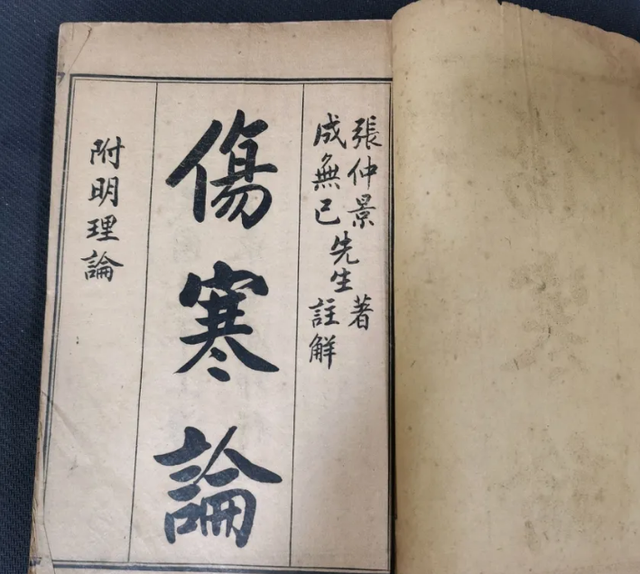 張仲景 著
成無已先生 註解
傷寒論
附明理論